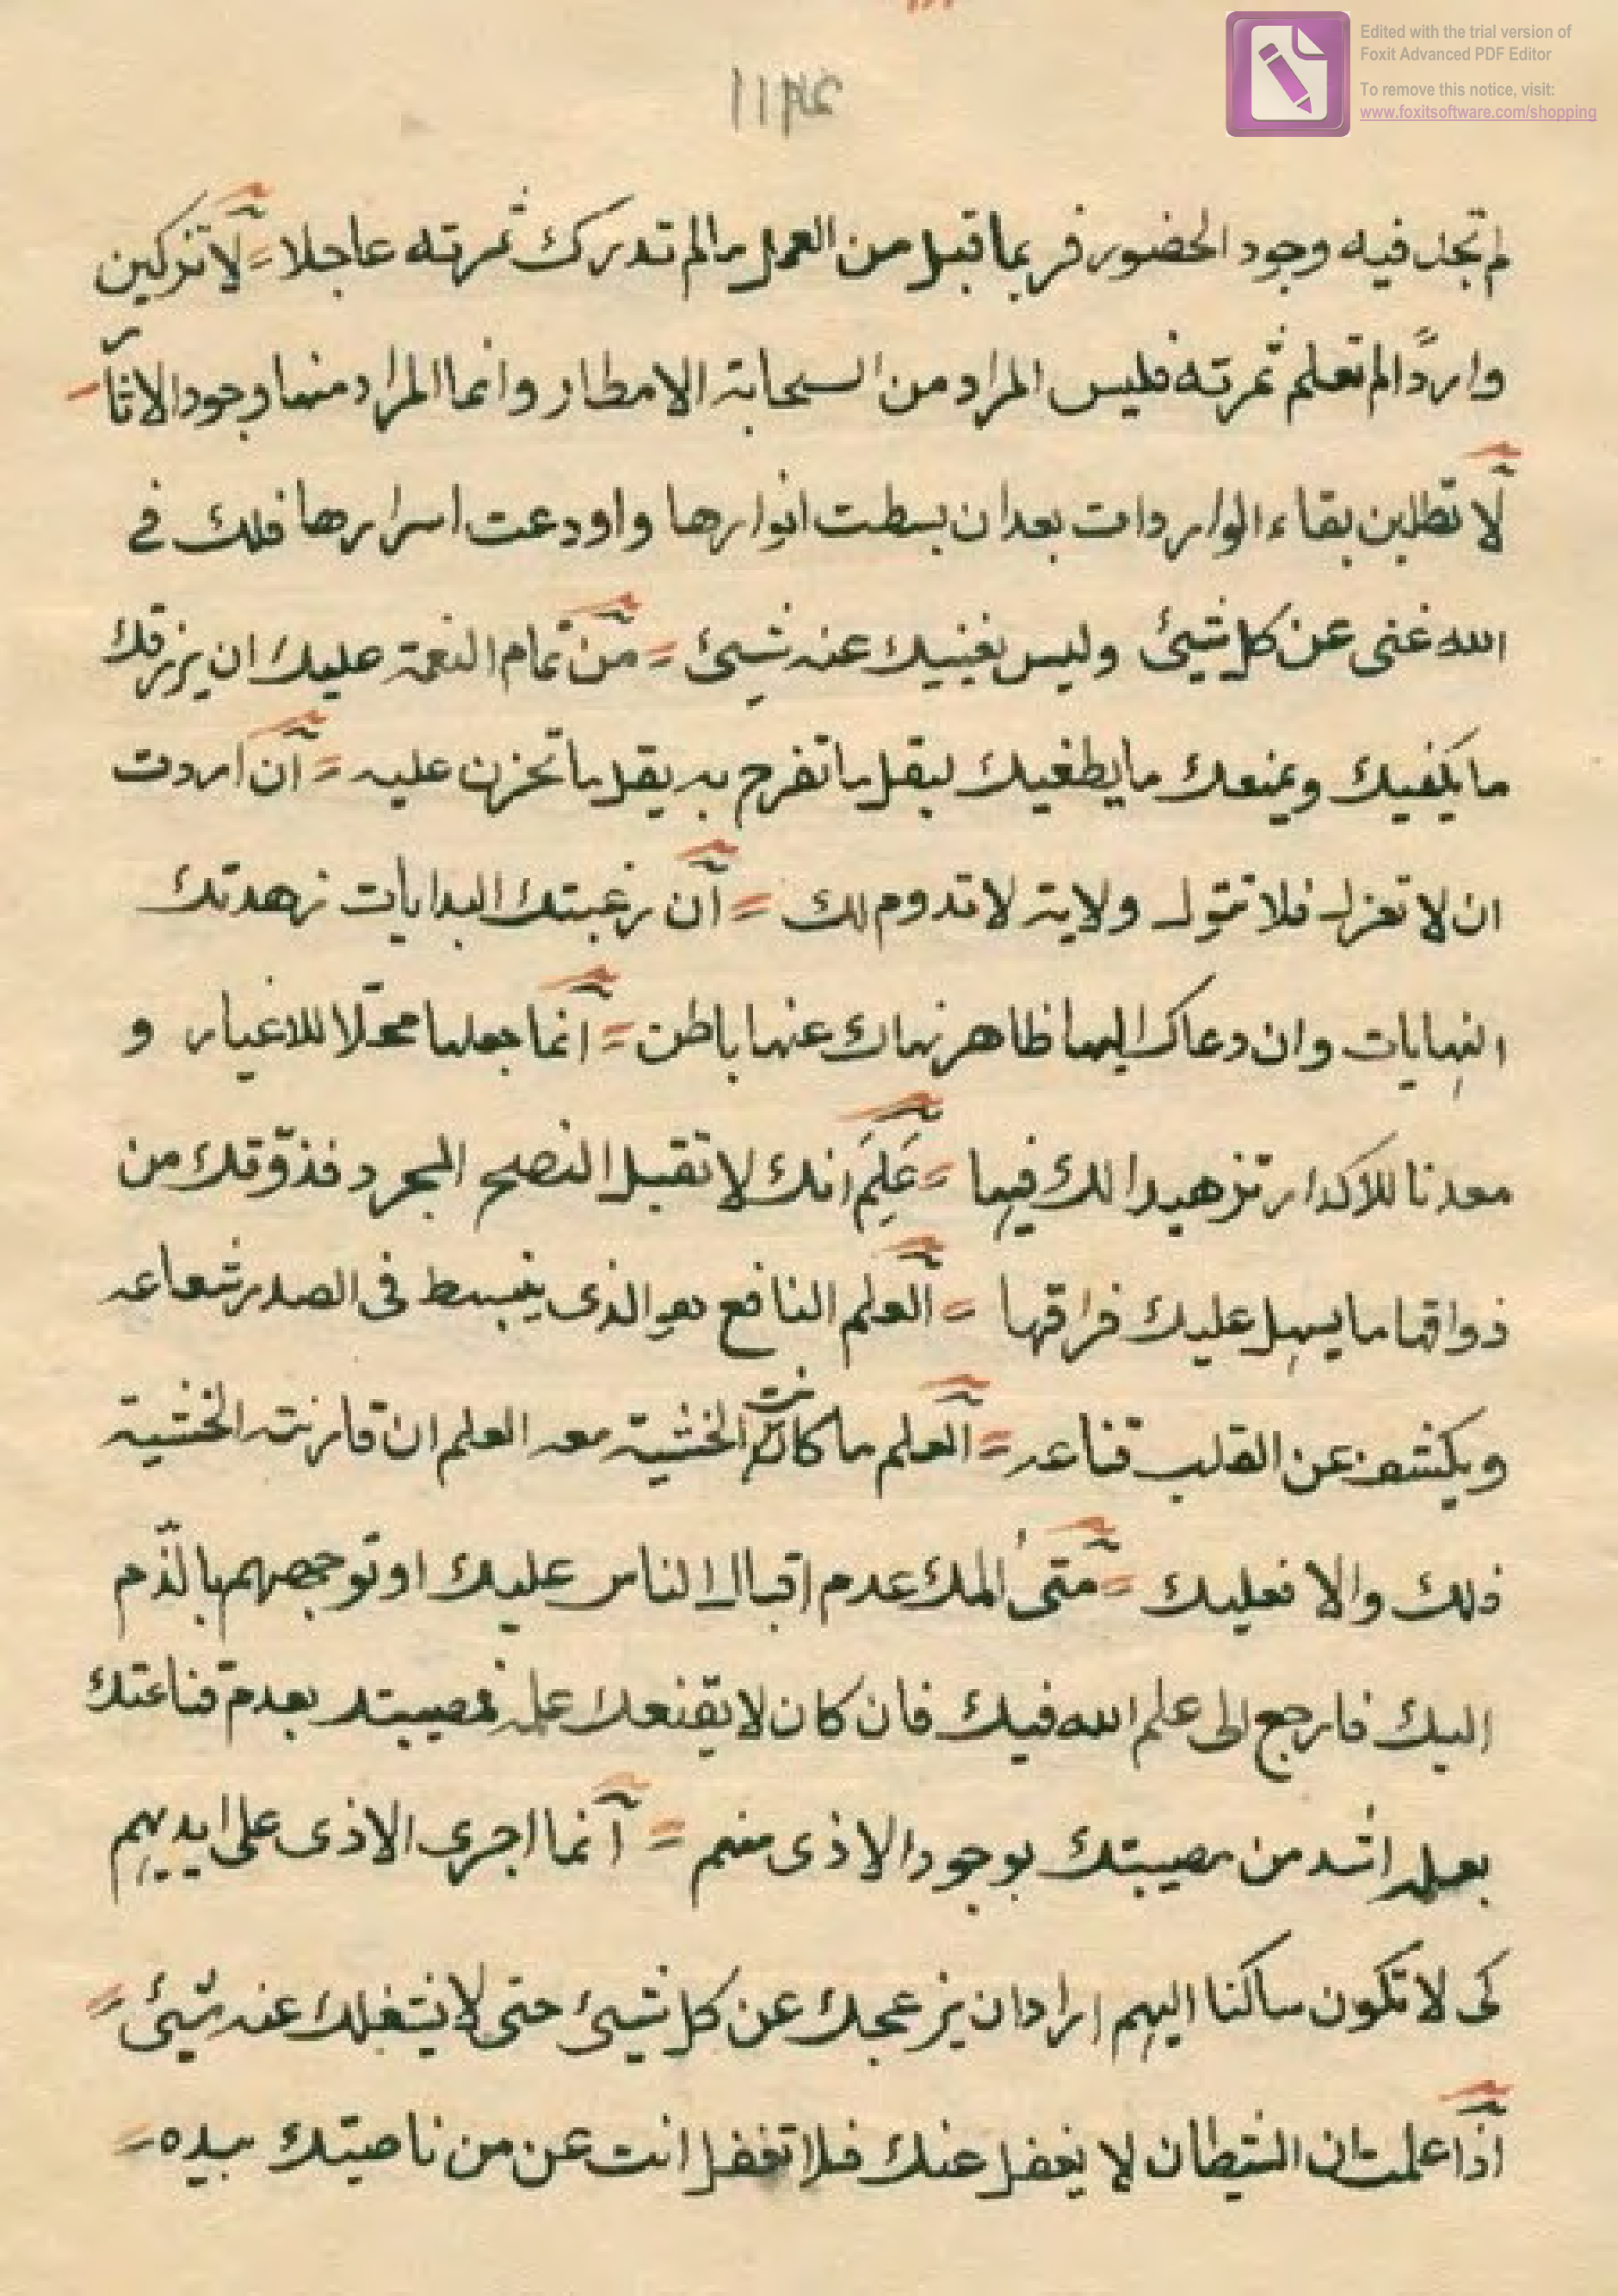 Edited with the trial version of
Foxit Advanced PDF Editor
To remove this notice, visit:
www.foxitsoftware.com/shopping
لم تجد فيه وجود الحضور فربما قبل من العمل مالم تدرك ثمرته عاجلا = لا تزكين
واردًا لم تعلم ثمرته فليس المراد من السحابة الامطار وانما المراد منها وجود الاثا
لا تطلبن بقاء الواردات بعد ان بسطت انوارها واودعت اسرارها فلك في
الله غنى عن كل شيئ وليس يغنيك عنه شيئ = من تمام النعمة عليك ان يرزقك
ما يكفيك ويمنعك ما يطغيك ليقل ما تفرح به يقل ما تحزن عليه = ان اردت
ان لا تعزل فلا تتول ولاية لا تدوم لك = ان رغبتك البدايات زهدتك
النهايات وان دعاك اليها ظاهر نهاك عنها باطن = انما جعلها محلّا للاغيار و
معدنا للاكدار تزهيدا لك فيها = عَلِمَ انك لا تقبل النصح المجرد فذوّقك من
ذواقها ما يسهل عليك فراقها = العلم النافع هو الذى ينبسط فى الصدر شعاعه
ويكشف عن القلب قناعه = العلم ما كانت الخشية معه العلم ان قارنته الخشية
فلك والا فعليك = متى المك عدم اقبال الناس عليك او توجههم بالذّم
اليك فارجع الى علم الله فيك فان كان لا يقنعك علمه فمصيبتك بعدم قناعتك
بعلمه اشد من مصيبتك بوجود الاذى منهم = انما اجرى الاذى على ايديهم
كى لا تكون ساكنا اليهم اراد ان يزعجك عن كل شيئ حتى لا يشغلك عنه شيئ =
اذا علمت ان الشيطان لا يغفل عنك فلا تغفل انت عن من ناصيتك بيده =